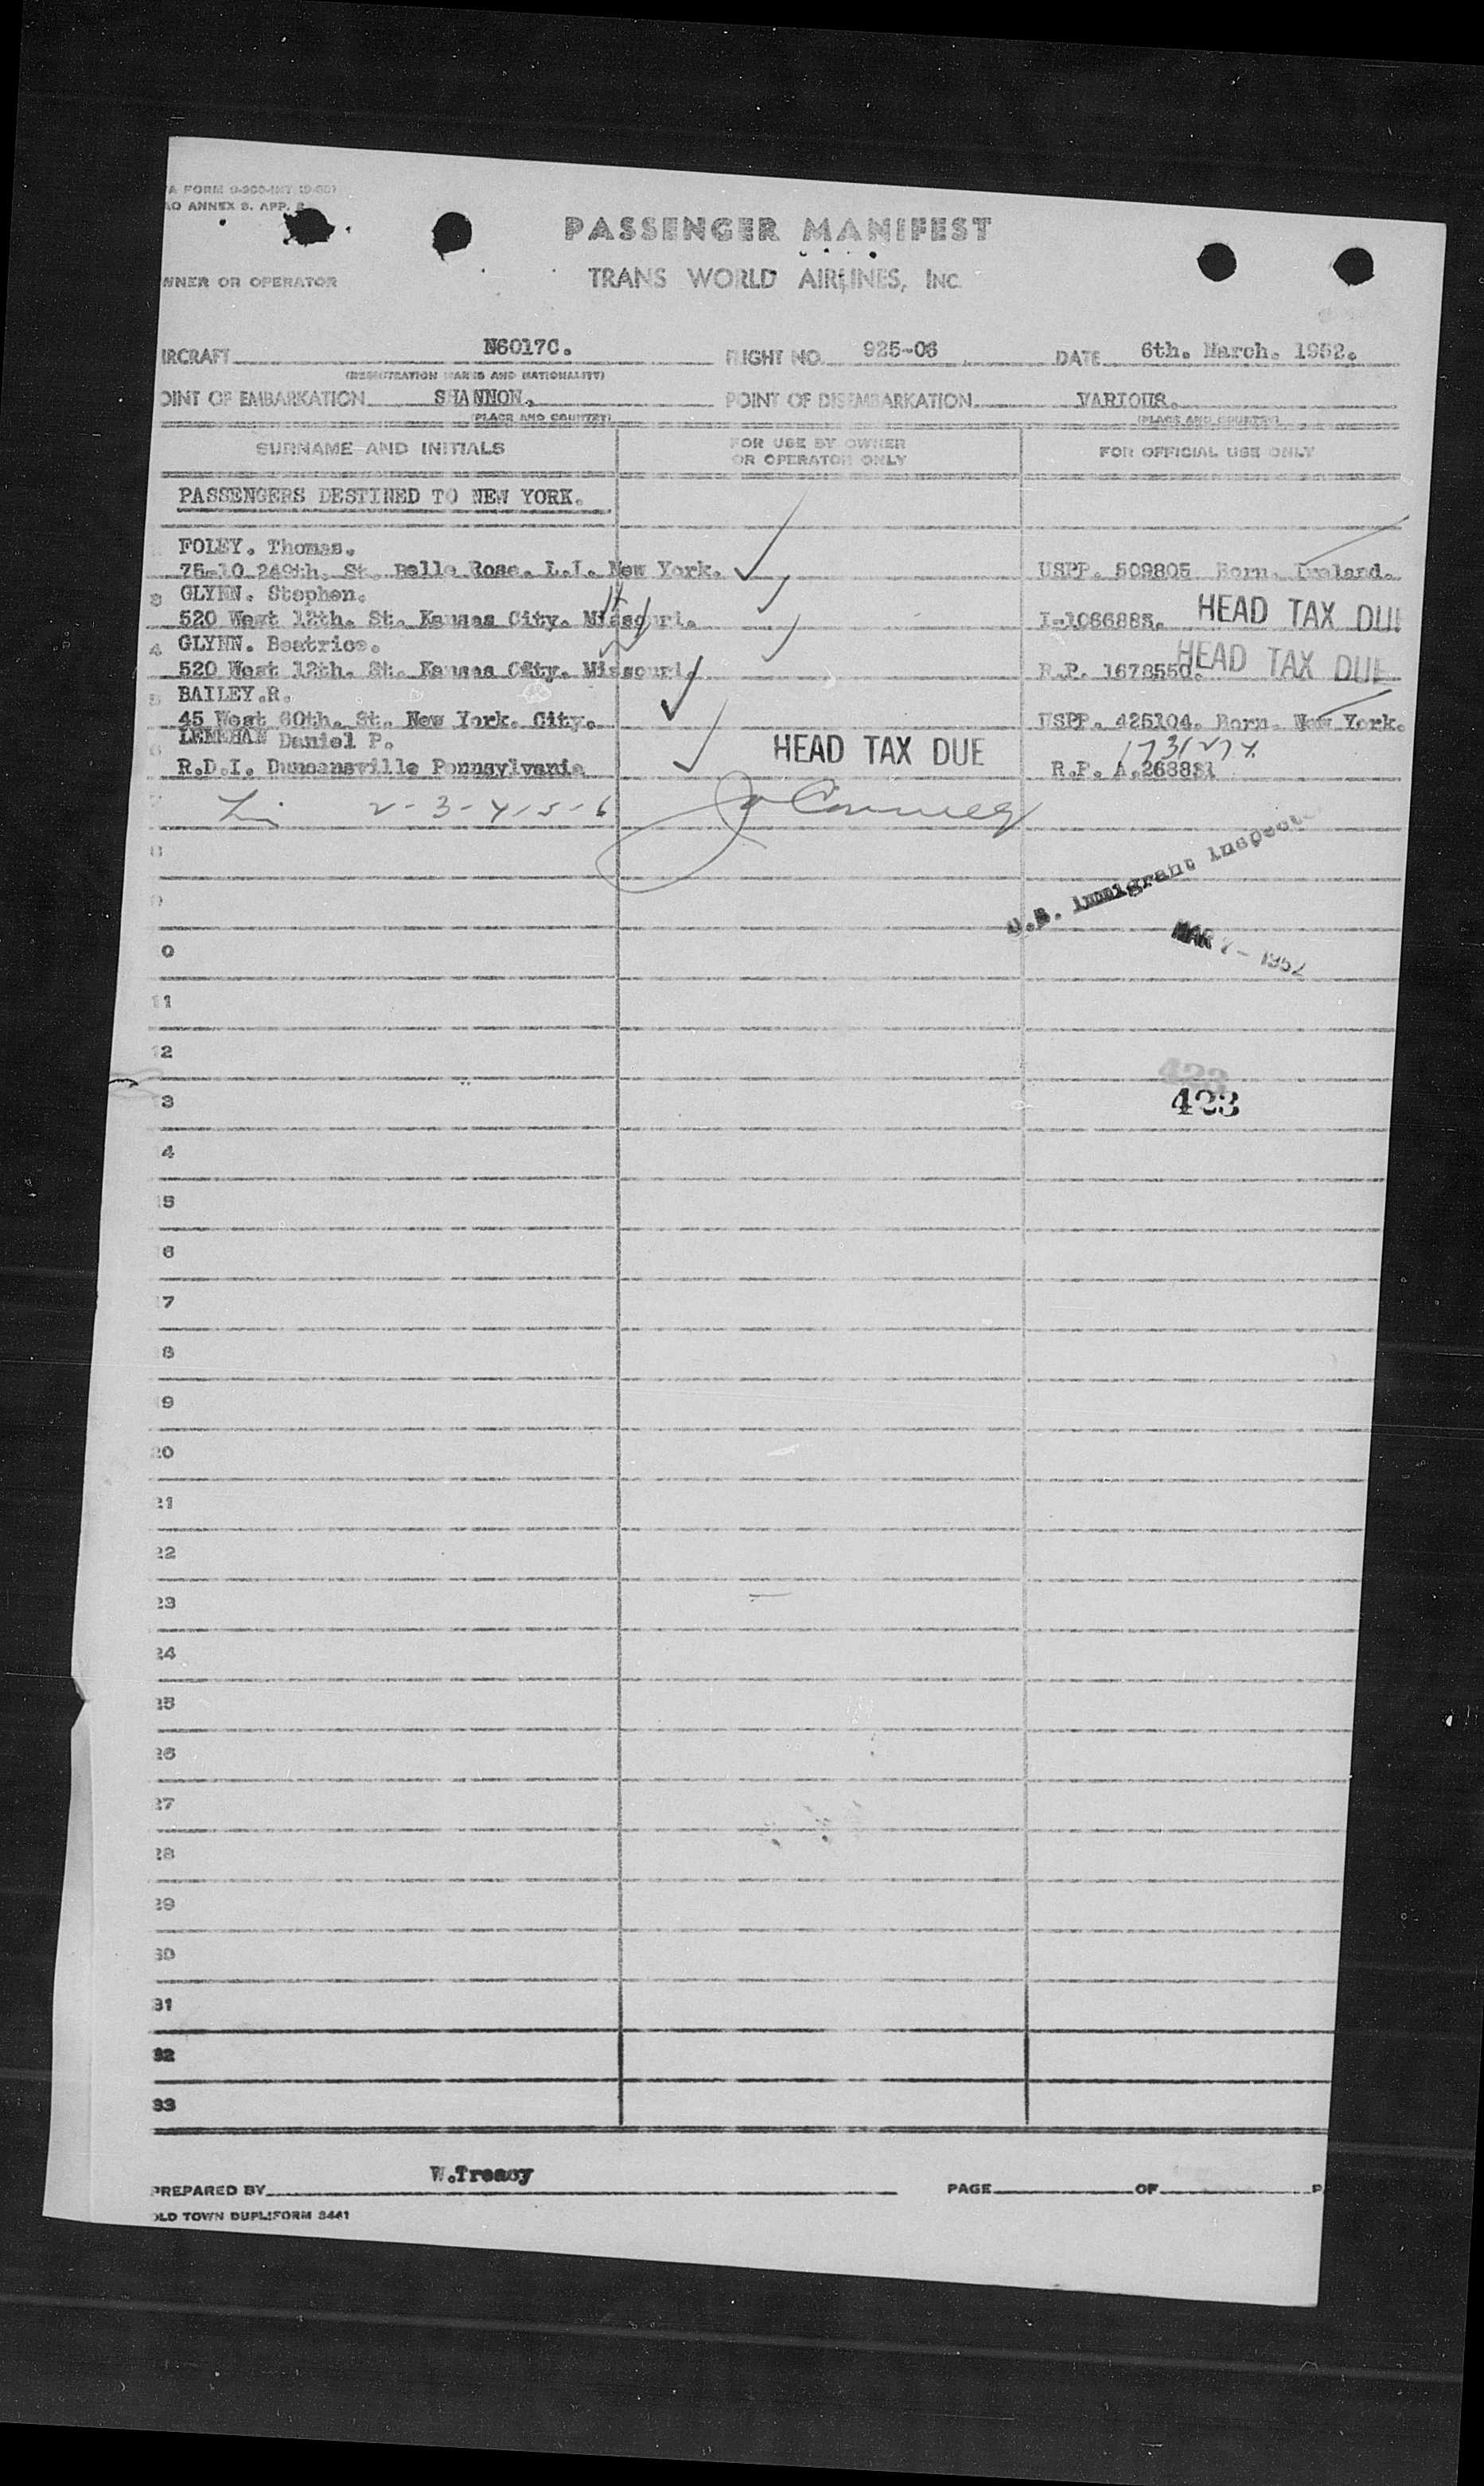 A FORM
AO ANNEX 9. APP.
PASSENGER MANIFEST
WNER OR OPERATOR
TRANS WORLD AIRLINES, INC.
IRCRAFT N6017C. FLIGHT NO. 925-06 DATE 6th. March. 1952.
(REGISTRATION MARKS AND NATIONALITY)
OINT OF EMBARKATION SHANNON. POINT OF DISEMBARKATION VARIOUS.
(PLACE AND COUNTRY) (PLACE AND COUNTRY)
SURNAME AND INITIALS FOR USE BY OWNER OR OPERATOR ONLY FOR OFFICIAL USE ONLY
PASSENGERS DESTINED TO NEW YORK.
FOLEY. Thomas.
75-10 249th. St. Belle Rose. L.I. New York. USPP. 509805 Born. Ireland.
3 GLYNN. Stephen.
520 West 12th. St. Kansas City. Missouri. I-1086885. HEAD TAX DUE
4 GLYNN. Beatrice.
520 West 12th. St. Kansas City. Missouri. R.P. 1678550. HEAD TAX DUE
5 BAILEY.R.
45 West 60th. St. New York. City. USPP. 425104. Born. New York.
6 LENEHAN Daniel P. HEAD TAX DUE
R.D.I. Duncansville Pennsylvania R.P. A.268831
2-3-4-5-6
8
U.S. Immigrant Inspecto
9
MAR 7 - 1952
0
11
12
423
423
3
4
15
6
7
8
9
20
21
22
23
24
25
26
27
28
29
30
31
32
33
W.Treacy
PREPARED BY PAGE OF P
OLD TOWN DUPLIFORM 8441